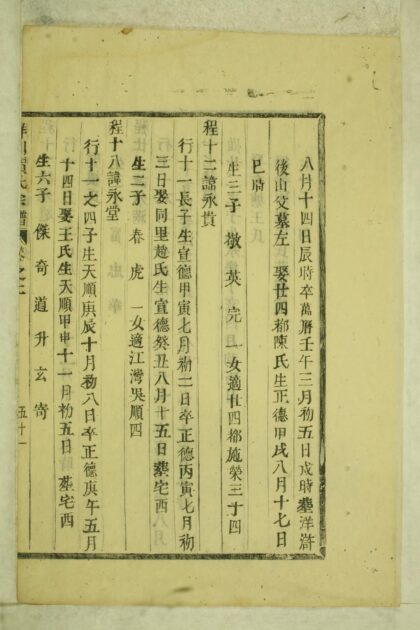 八月十四日辰時卒萬曆壬午三月初五日戌時塟洋滸
後山父墓左 娶廿四都陳氏生正德甲戌八月十七日
巳時
生三子 墩 英 完 一女適廿四都施榮三十四
程十二諱永貴
行十一長子生宣德甲寅七月初二日卒正德丙寅七月初
三日娶同里趙氏生宣德癸丑八月十五日塟宅西
生二子 春 虎 一女適江灣吳順四
程十八諱永堂
行十一之四子生天順庚辰十月初八日卒正德庚午五月
十四日娶王氏生天順甲申十一月初五日 塟宅西
生六子 傑 奇 道 升 玄 寄
氏宗譜 卷之二 五十一